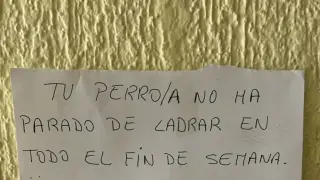 TU PERRO/A NO HA
PARADO DE LADRAR EN
TODO EL FIN DE SEMANA.